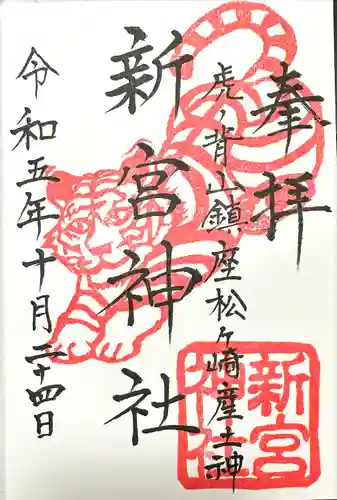 奉拝
虎ノ背山鎮座松ヶ崎産土神
新宮神社
令和五年十月二十四日
新宮
神社